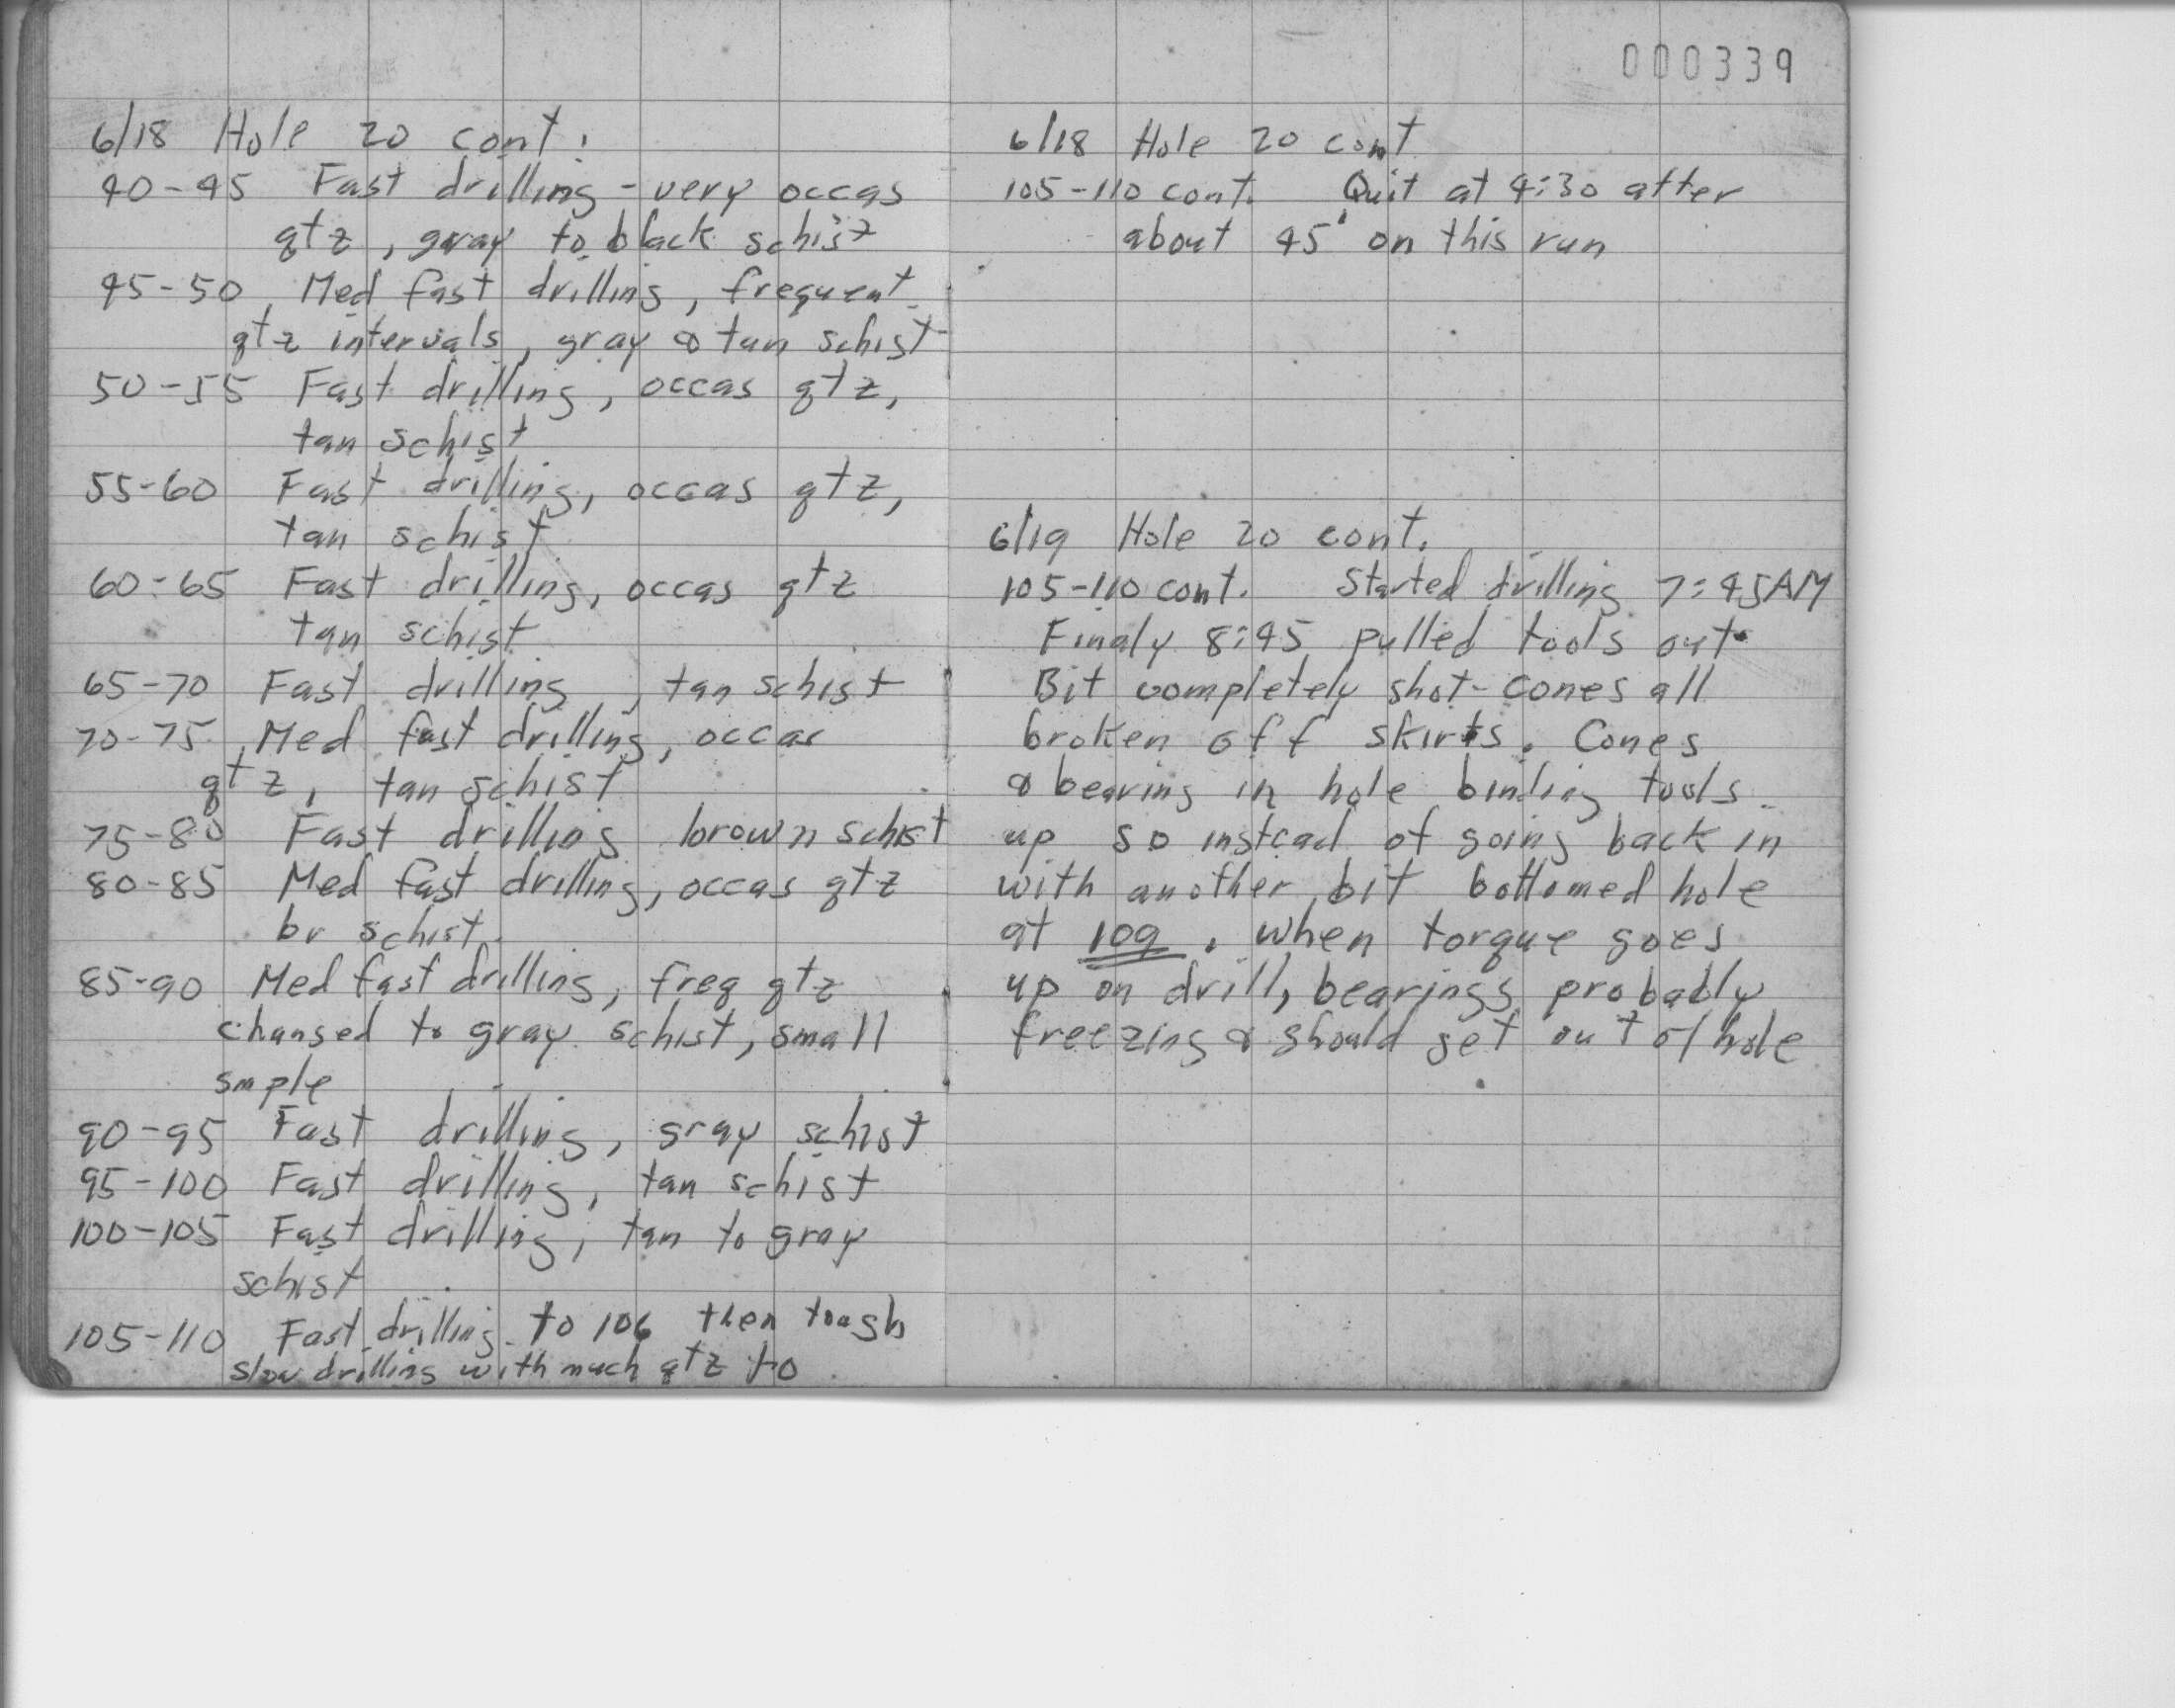 000339
6/18 Hole 20 cont.
40-45 Fast drilling - very occas
qtz, gray to black schist
45-50 Med fast drilling, frequent
qtz intervals, gray & tan schist
50-55 Fast drilling, occas qtz,
tan schist
55-60 Fast drilling, occas qtz,
tan schist
60-65 Fast drilling, occas qtz
tan schist
65-70 Fast drilling, tan schist
70-75 Med fast drilling, occas
qtz, tan schist
75-80 Fast drilling brown schist
80-85 Med fast drilling, occas qtz
br schist.
85-90 Med fast drilling, freq qtz
changed to gray schist, small
smple
90-95 Fast drilling, gray schist
95-100 Fast drilling, tan schist
100-105 Fast drilling, tan to gray
schist
105-110 Fast drilling to 106 then tough
slow drilling with much qtz to
6/18 Hole 20 cont
105-110 cont. Quit at 4:30 after
about 45' on this run
6/19 Hole 20 cont.
105-110 cont. Started drilling 7:45AM
Finaly 8:45 pulled tools out
Bit completely shot - cones all
broken off skirts. Cones
& bearing in hole binding tools
up so instead of going back in
with another bit bottomed hole
at 109. When torque goes
up on drill, bearings probably
freezing & should get out of hole